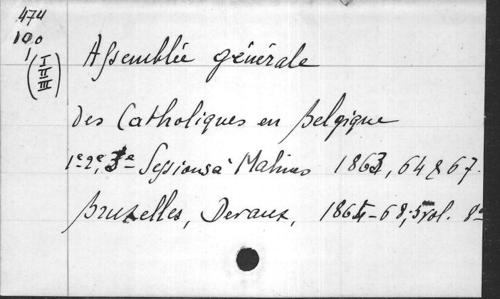 474
100
1
(I-III)
Assemblée générale
des Catholiques en Belgique
1e 2e, 3e Sessions à Malines 1863, 64 & 67.
Bruxelles, Devaux, 1865-68, 5 vol. 8°